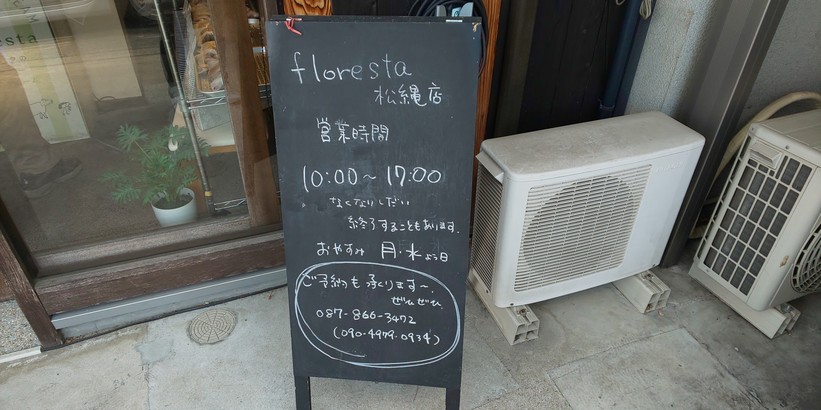 floresta
松縄店
営業時間
10:00～17:00
なくなりしだい
終了することもあります.
おやすみ 月・水よう日
ご予約も承ります～.
ぜひぜひ.
087-866-3472
(090.4979.0934)
esta